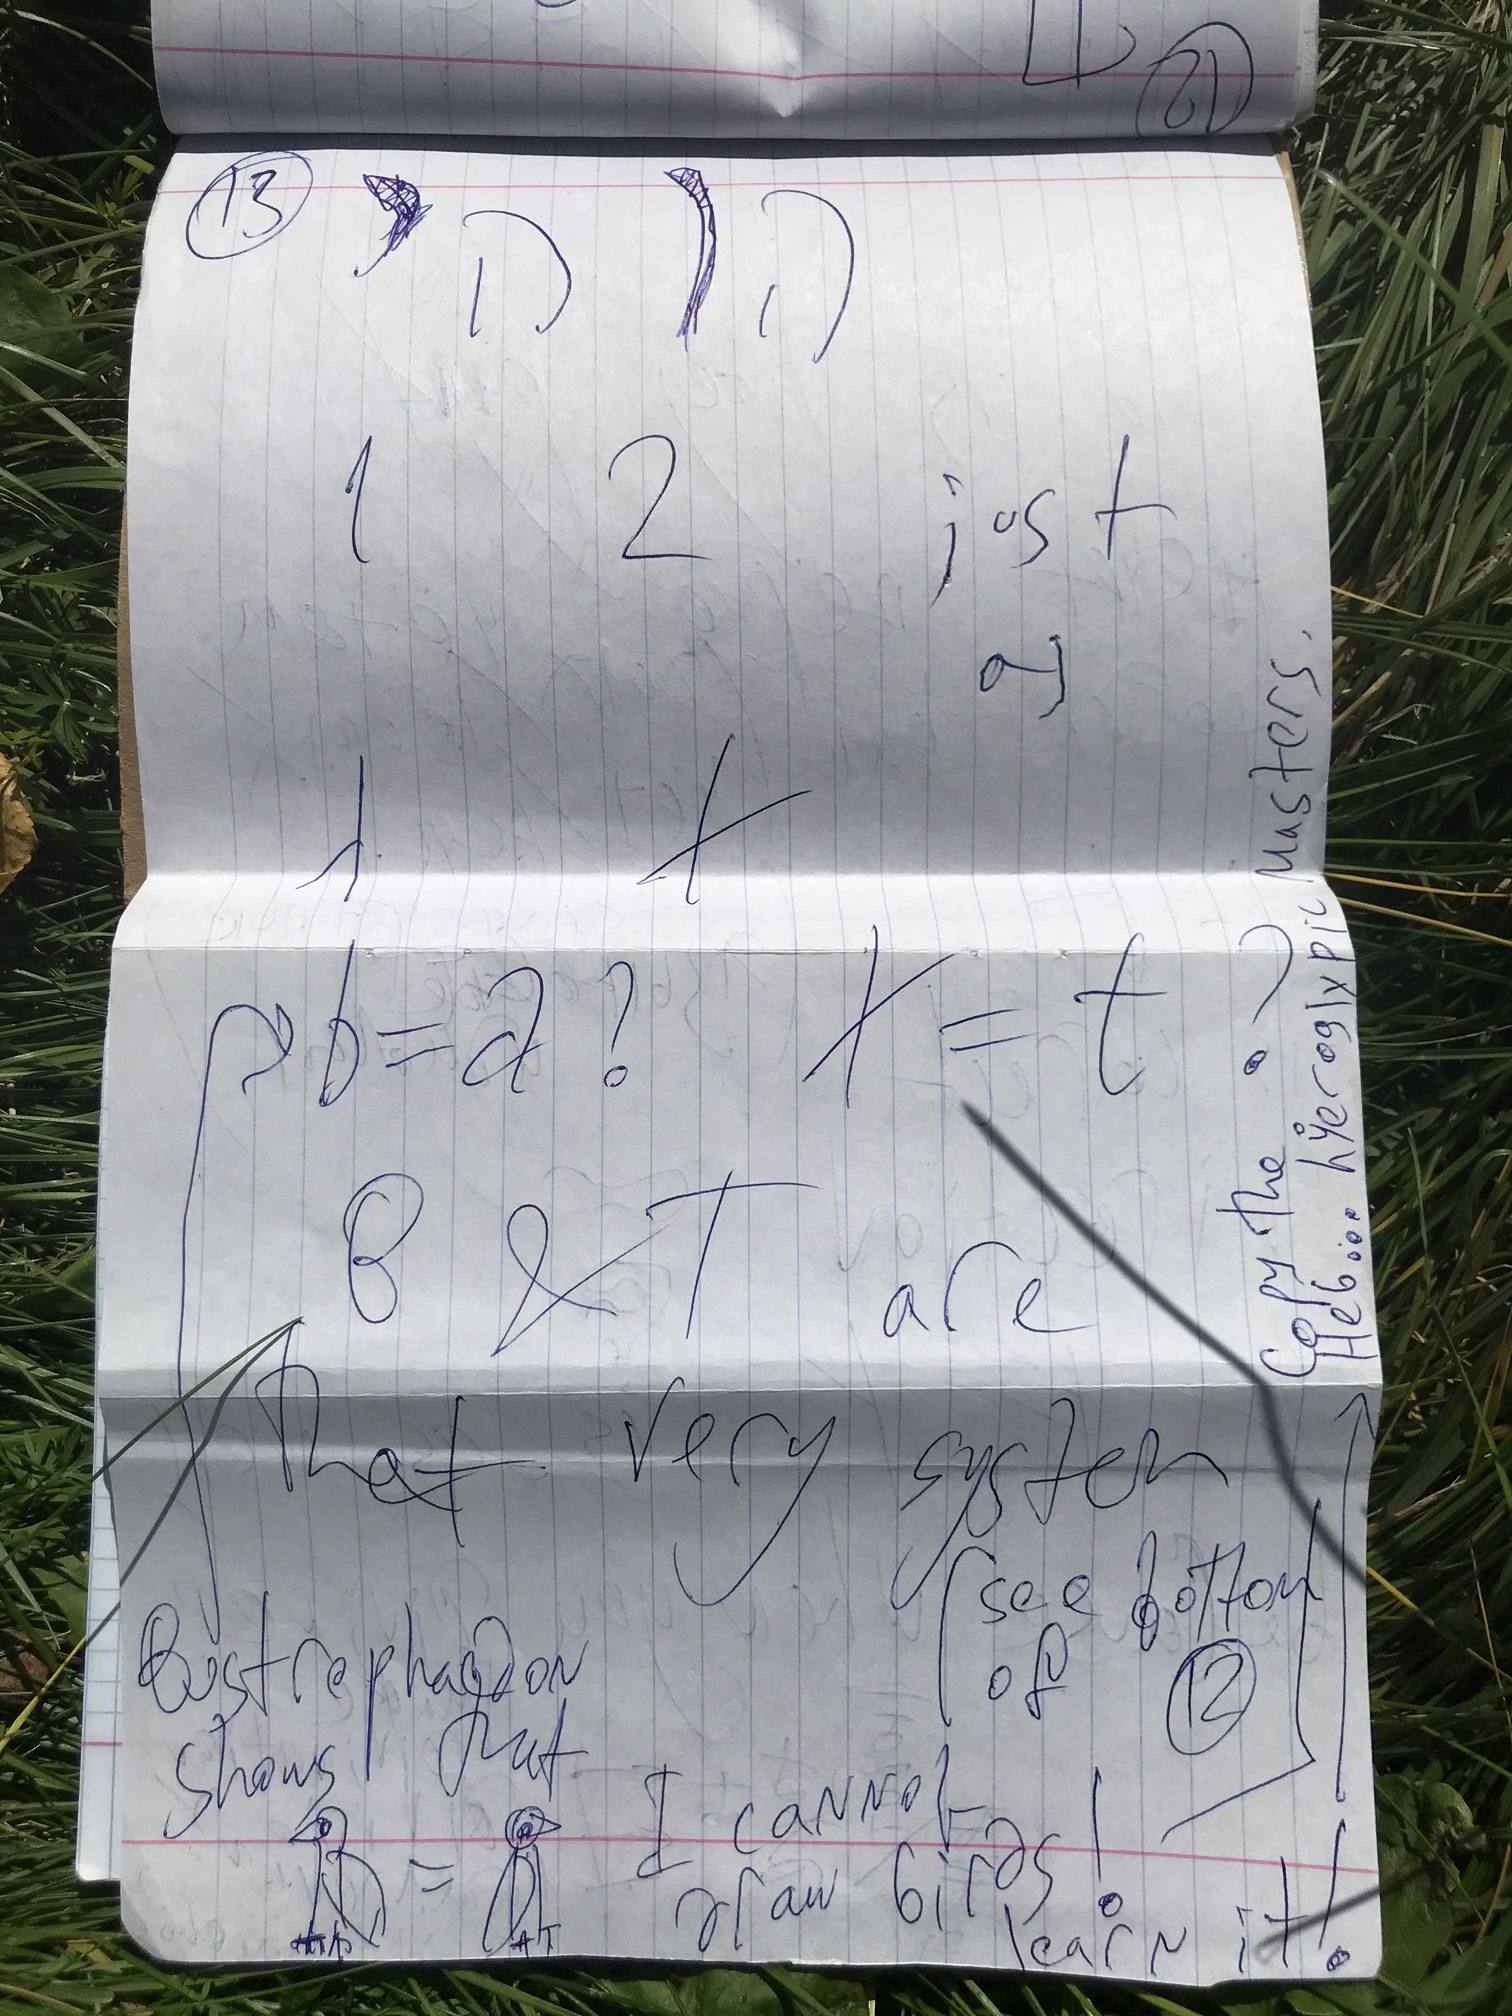 12
13
1 2 just
a
t
b=a? t = t
B & T are
that very system
(see bottom
of 12)
Bustrephadon
shows that
= I cannot
draw birds!
learn it!
Copy the
Heb... hieroglypic Masters.